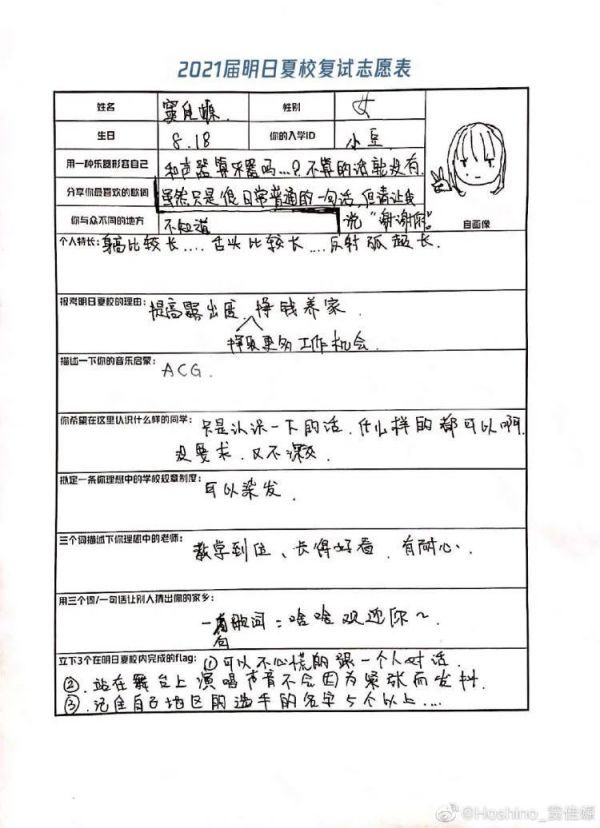 2021届明日夏校复试志愿表
姓名 窦佳嫄 性别 女
生日 8.18 你的入学ID 小豆
用一种乐器形容自己 和声器算乐器吗...？不算的话就没有.
分享你最喜欢的歌词 虽然只是很日常普通的一句话,但请让我
说“谢谢你”.
你与众不同的地方 不知道
自画像
个人特长: 身高比较长....舌头比较长....反射弧超长.
报考明日夏校的理由: 提高露出度、挣钱养家.
择取更多工作机会.
描述一下你的音乐启蒙: ACG.
你希望在这里认识什么样的同学: 只是认识一下的话、什么样的都可以啊.
没要求、又不深交
拟定一条你理想中的学校规章制度:
可以染发.
三个词描述下你理想中的老师:
教学到位、长得好看、有耐心.
用三个词/一句话让别人猜出你的家乡:
一句歌词:啥啥欢迎你~
立下3个在明日夏校内完成的flag: ①可以不心慌的跟一个人对话.
②.站在舞台上演唱声音不会因为紧张而发抖.
③.记住自己地区的选手的名字5个以上....
@Hoshino_窦佳嫄